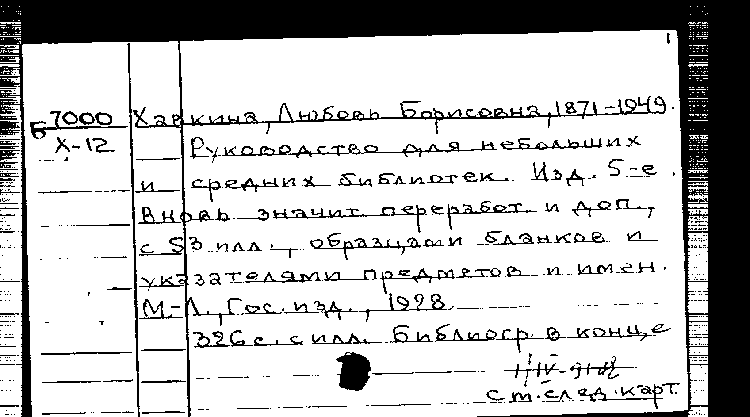 1
Б 7000
Х-12
Хавкина, Любовь Борисовна, 1871-1949.
Руководство для небольших
и средних библиотек. Изд. 5-е.
Вновь значит. переработ. и доп.,
с 53 илл., образцами бланков и
указателями предметов и имен.
М.-Л., Гос. изд., 1928.
326 с. с илл. Библиогр. в конце
с т. след. карт.